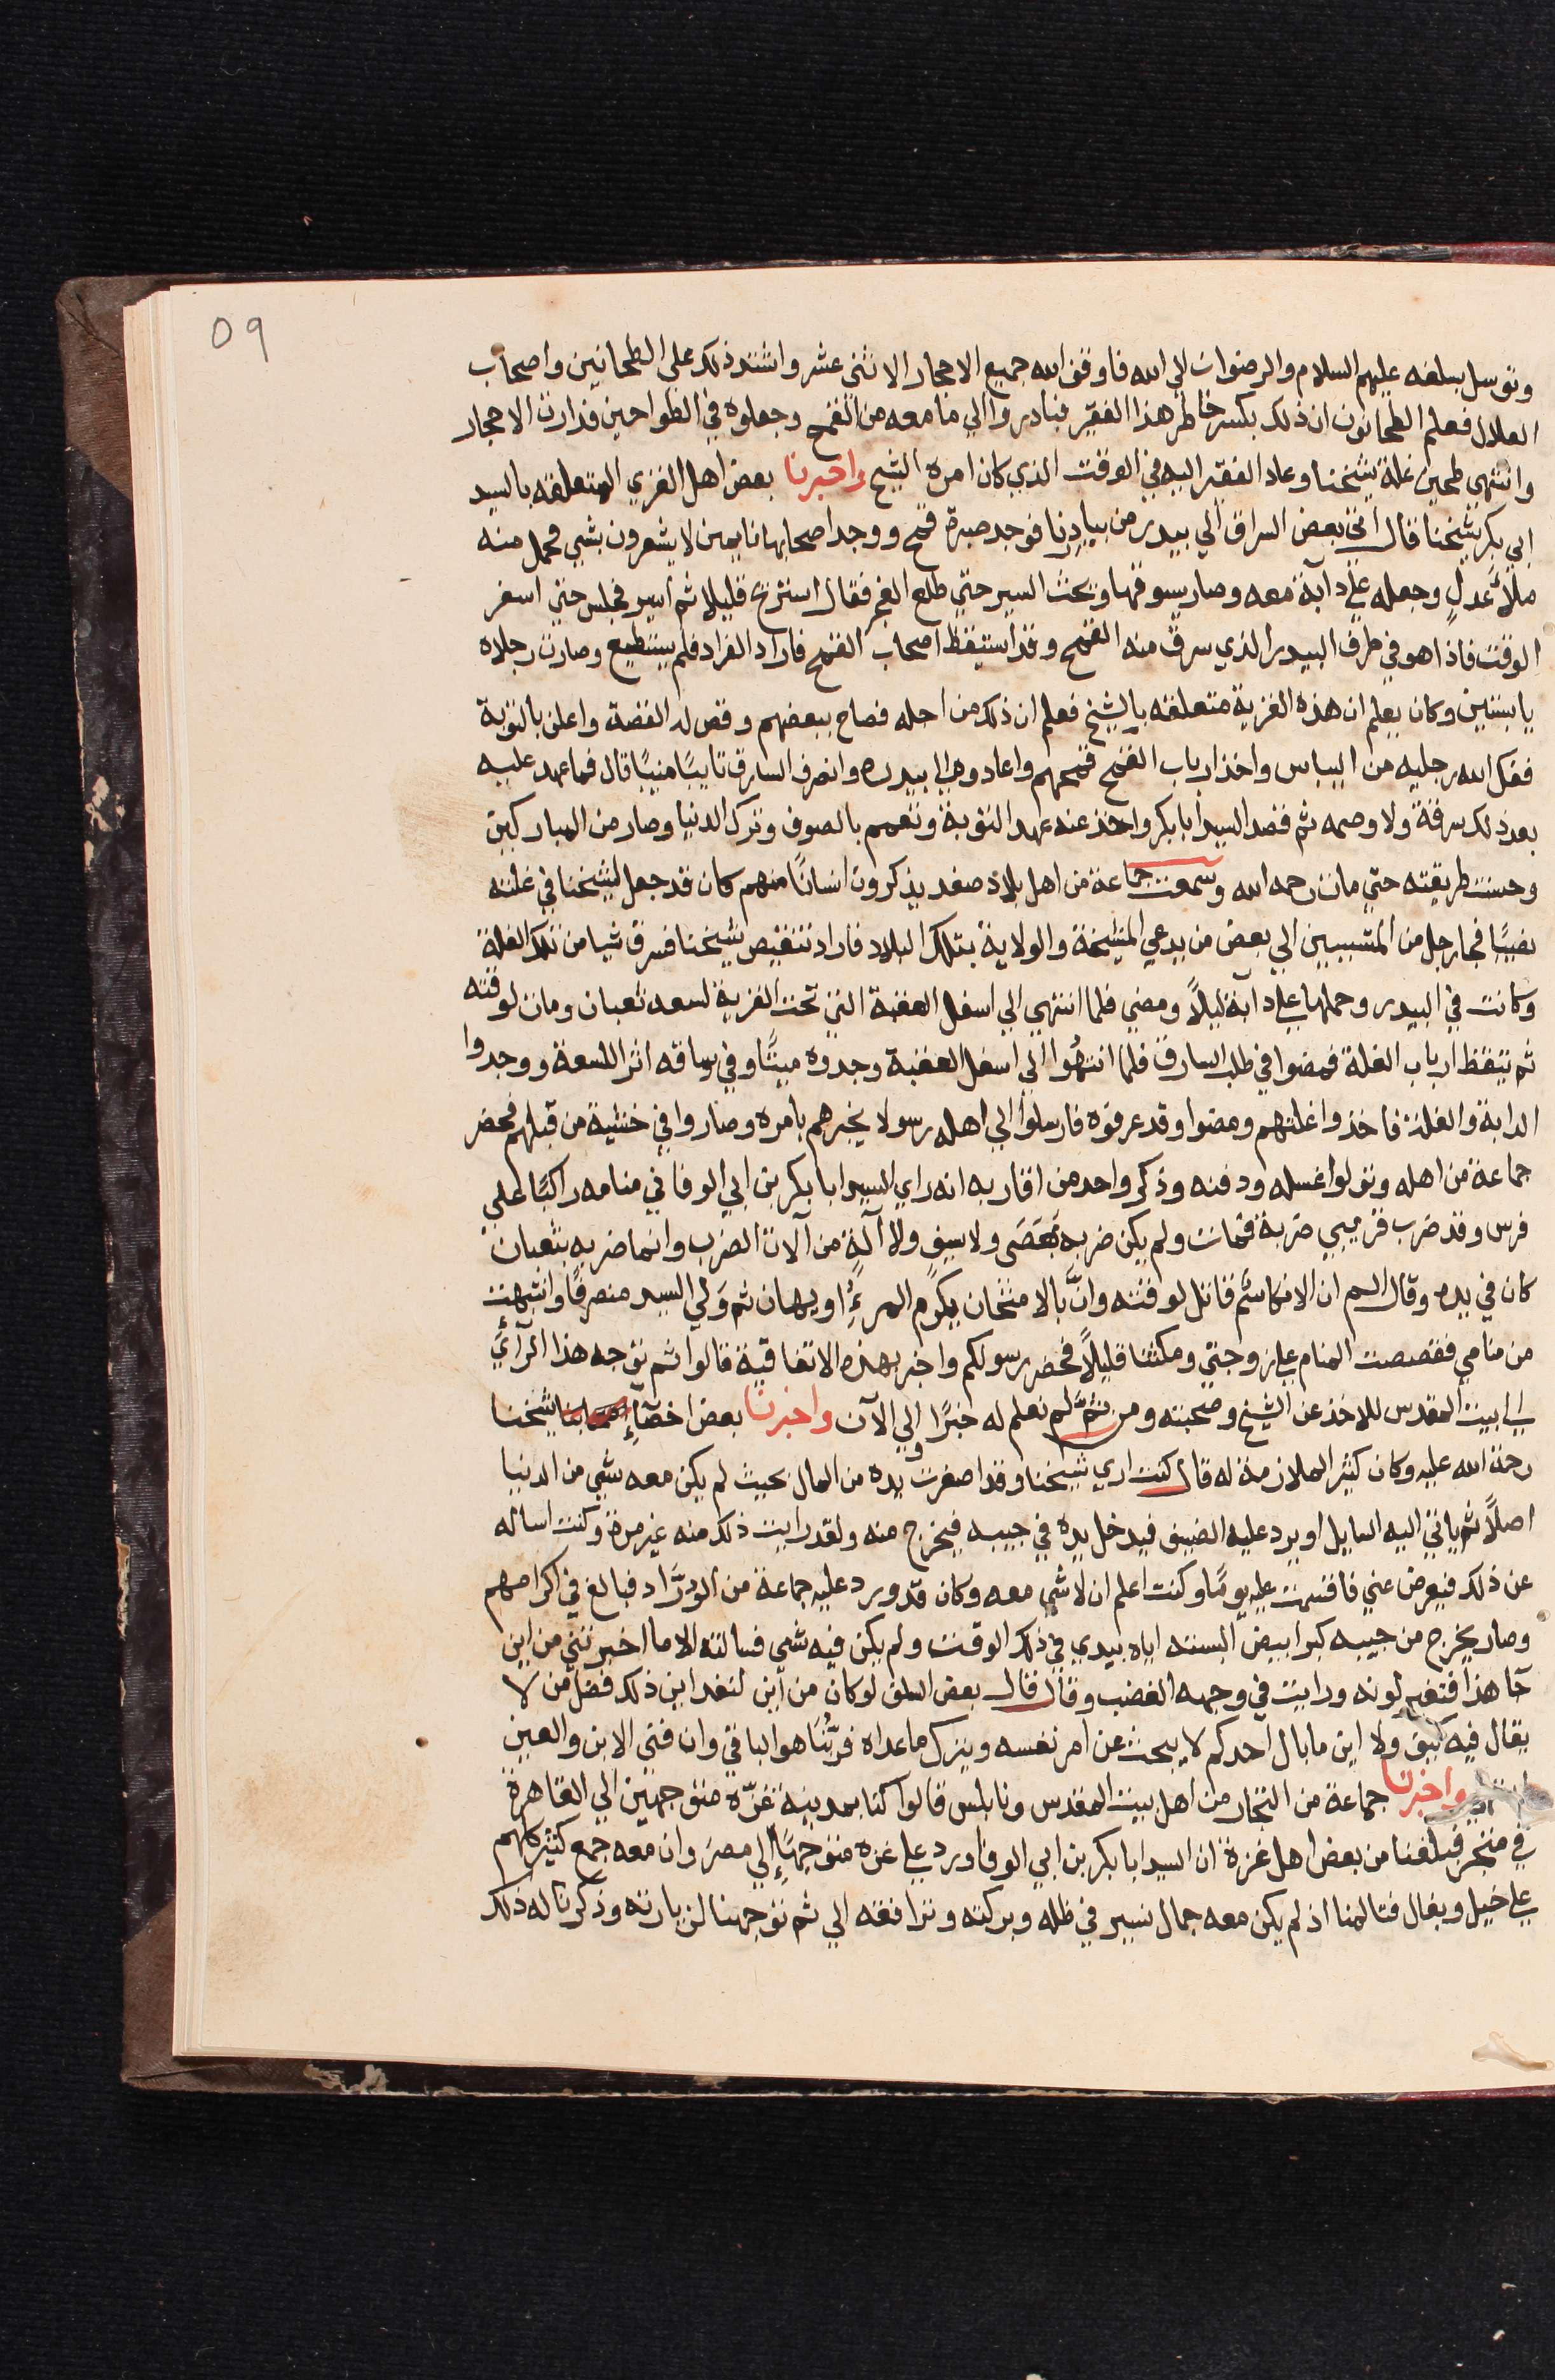 ٥٩
وتوسل بسلفه عليهم السلام والرضوان الي الله فاوقف الله جميع الاحجار الاثني عشر واشتد ذلك علي الطحانين واصحاب
الغلال فعلم الطحانون ان ذلك بكسر خاطر هذا الفقير فبادروا الي ما معه من القمح وجعلوه في الطواحين فدارت الاحجار
وانتهي طحين غلة شيخنا وعاد الفقير اليه في الوقت الذي كان امره الشيخ واخبرنا بعض اهل القري المتعلقة بالسيد
ابي بكر شيخنا قال اتي بعض السراق الي بيدر من بيادرنا فوجد صبرة قمح ووجد اصحابها نايمين لا يشعرون بشي فحمل منه
ملأ عدلٍ وجعله علي دآبة معه وصار يسوقها ويحث السير حتي طلع الفجر فقال استرح قليلا ثم اسير فجلس حتي اسفر
الوقت فاذا هو في طرف البيدر الذي سرق منه القمح وقد استيقظ اصحاب القمح فاراد الفرار فلم يستطيع وصارت رجلاه
يابستين وكان يعلم ان هذه القرية متعلقة بالشيخ فعلم ان ذلك من اجله فصاح ببعضهم وقص له القصة واعلن بالتوبة
ففك الله رجليه من اليباس واخذ ارباب القمح قمحهم واعادوه الي بيدره وانصرف السارق تايبًا منيبًا قال فما عهد عليه
بعد ذلك سرقة ولا وصمه ثم قصد السيد ابا بكر واخذ عنه عهد التوبة وتعمم بالصوف وترك الدنيا وصار من المباركين
وحسنت طريقته حتي مات رحمه الله وسمعت جماعة من اهل بلاد صفد يذكرون انسانًا منهم كان قد جعل لشيخنا في غلته
نصيبًا فجا رجل من المتسببين الي بعض من يدعي المشيخة والولاية بتلك البلاد فاراد تنقيص شيخنا فسرق شيا من تلك الغلة
وكانت في البيدر وحملها علي دآبة ليلًا ومضي فلما انتهي الي اسفل العقبة التي تحت القرية لسعه ثعبان ومات لوقته
ثم تيقظ ارباب الغلة فمضوا في طلب السارق فلما انتهُوا الي اسفل العقبة وجدوه ميتًا وفي ساقه اثر اللسعة ووجدوا
الدابة والغلة فاخذوا غلتهم ومضوا وقد عرفوه فارسلوا الي اهله رسولا يخبرهم بامره وصاروا في خشية من قبلهم فحضر
جماعة من اهله وتولوا غسله ودفنه وذكر واحد من اقاربه انه راي السيد ابا بكر بن ابي الوفا في منامه راكبًا علي
فرس وقد ضرب قريبي ضربة فمات ولم يكن ضربه بعَصَي ولا سيفٍ ولا آلةٍ من آلات الضرب وانما ضربه بثعبان
كان في يده وقال السم ان الانكا سُم قاتل لوقته وانَّ بالامتحان يكرم المرءُ او يهان ثم وَلي السيد منصرفًا وانتبهت
من منامي فقصصت المنام علي زوجتي ومكثنا قليلاً فحضر رسولكم واخبر بهذه الاتفاقية قالوا ثم توجه هذا الرآيُ
الي بيت المقدس للاخذ عن الشيخ وصحبته ومن ثمَّ لم نعلم له خبرًا الي الآن واخبرنا بعض اخصآءِ شيخنا
رحمة الله عليه وكان كثير الملازمة له قال كنت اري شيخنا وقد اصفرت يده من المال بحيث لم يكن معه شي من الدنيا
اصلًا ثم ياتي اليه السايل او يرد عليه الضيف فيدخل يده في جيبه فيخرج منه ولقد رايت ذلك منه غير مرة وكنت اساله
عن ذلك فيعرض عني فاقسمت عليه يومًا وكنت اعلم ان لا شي معه وكان قد ورد عليه جماعة من الورَّاد فبالغ في اكرامهم
وصار يخرج من جيبه كبرا بيض البسته اياه بيدي في ذلك الوقت ولم يكن فيه شي فسالته الا ما اخبرتني من اين
جآ هذا فتغير لونه ورايت في وجهه الغضب وقال قال بعض السلف لو كان من اين لنفد اين ذلك فضل من لا
يقال فيه كيف ولا اين ما بال احدكم لا يبحث عن امر نفسه ويترك ما عداه فربُّنا هو الباقي وان فني الاين والعين
واخبرنا جماعة من التجار من اهل بيت المقدس ونابلس قالوا كنا بمدينة غزّه متوجهين الي القاهرة
في متجر فبلغنا من بعض اهل غزة ان السيد ابا بكر بن ابي الوفا ورد علي غزه متوجهًا الي مصر وان معه جمع كثير كلهم
علي خيل وبغال فتالمنا اذ لم يكن معه جمال نسير في ظله وبركته ونرافقه الي ثم توجهنا لزيارته وذكرنا له ذلك